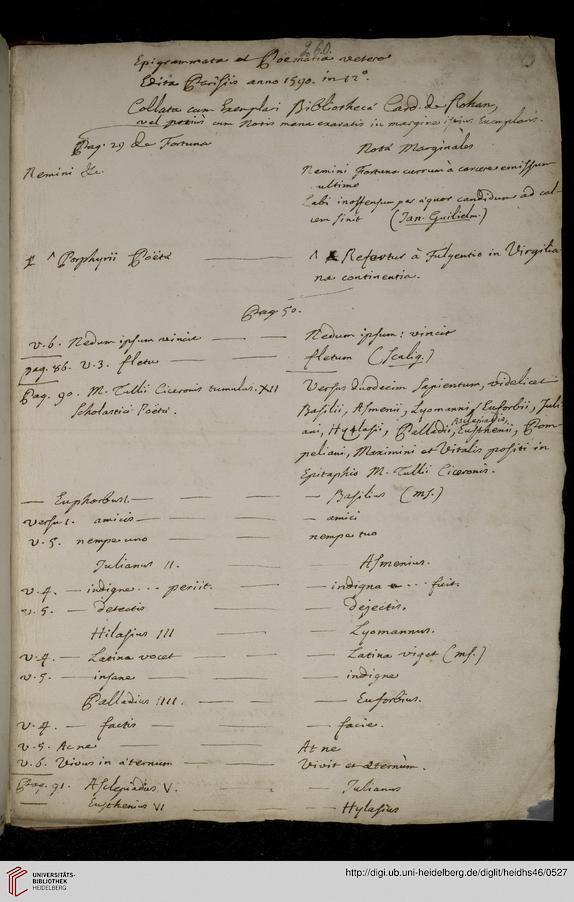 260.
Epigrammata et Poëmatia vetera
Edita Parisiis anno 1590. in 12°.
Collata cum Exemplari Bibliothecæ Card. de Rohan,
vel potius cum Notis manu exaratis in margine istius Exemplaris.
Pag. 29 de Fortuna
Notæ Marginales
Nemini &c.
Nemini Fortuna currum à carcere emissum
ultimo
Labi inoffensum per æquor candidum ad cal-
cem sinit (Jan. Guilielm.)
^ Porphyrii Poëtæ —
^ Refertur à Fulgentio in Virgilia-
na continentia.
Pag. 50.
v. 6. Nedum ipsum vincia — — Nedum ipsum: vincit
pag. 86. v. 3. fletu — — fletum (Scalig.)
Pag. 90. M. Tullii Ciceronis tumulus. XII
Scholastici Poetæ.
Versus duodecim sapientum, videlicet
Basilii, Asmenii, Lyomanni, Euforbii, Juli-
ani, Hylasii, Palladii, Asclepiadis, Eusthenii, Pom-
peliani, Maximini et Vitalis positi in
Epitaphio M. Tullii Ciceronis.
— Euphorbus I. — — — Basilius (ms.)
versu 1. amicis — — — amici
v. 5. nempe uno — — nempe tuo
Julianus II. — — Asmenius.
v. 4. — indigne . . . periit. — — indigna . . . fuit.
v. 5. — detectis — — dejectis.
Hilasius III — — Lyomannus.
v. 4. — Latina vocet — — Latina viget (ms.)
v. 5. — insane — — indigne
Palladius IIII. — — Euforbius.
v. 4. — factis — — facie.
v. 5. Ac ne — — At ne
v. 6. Vivus in æternum — — Vivit et æternùm.
Pag. 91. Asclepiadius V. — — Julianus
— Eusthenius VI — — Hylasius
UNIVERSITÄTS-
BIBLIOTHEK
HEIDELBERG
http://digi.ub.uni-heidelberg.de/diglit/heidhs46/0527